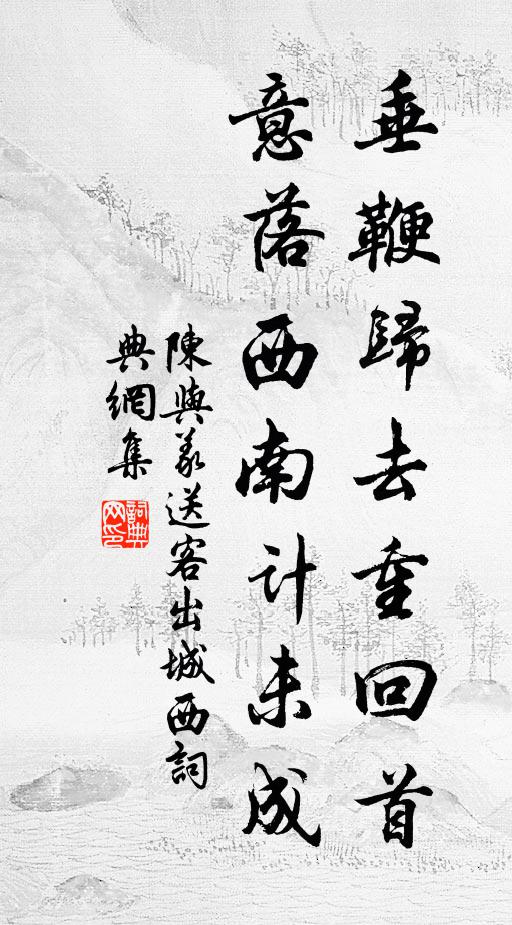 垂鞭歸去重回首
意落西南计未成
陳與義送客出城西詞
典網集
詞典
网印